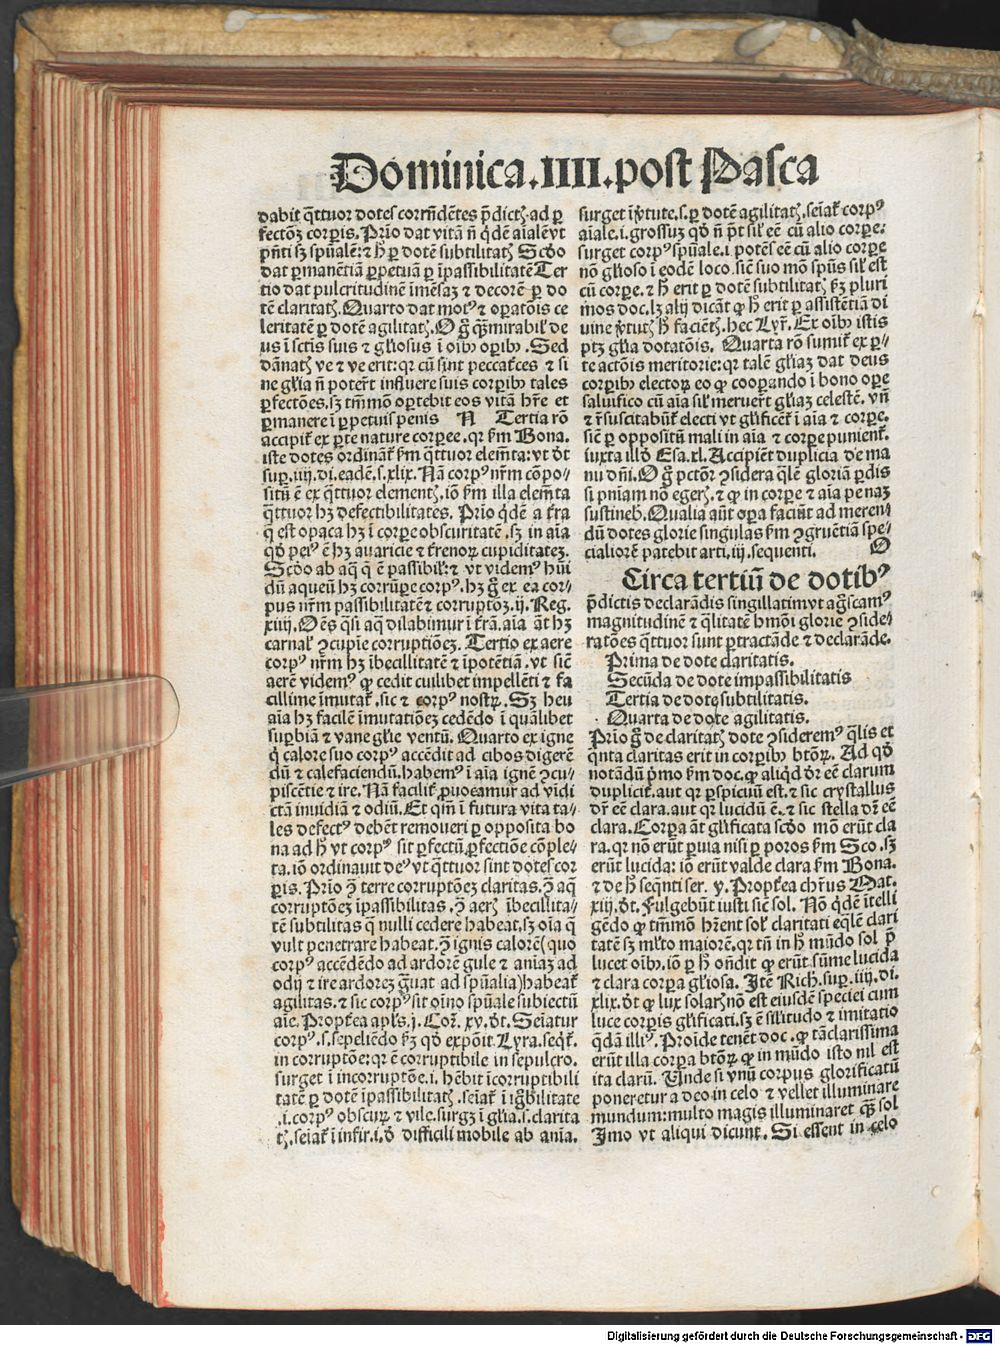 Dominica.IIII.post Pasca
dabit q̄ttuor dotes corrn̄dētes p̄dictꝭ ad ꝑ
fectōꝫ corꝑis. Prīo dat vitā n̄ q̇dē aīalē vt
pn̄ti sꝫ spūalē: ⁊ h̄ ꝑ dotē subtilitatꝭ Scd̄o
dat ꝑmanētiā ꝑpetuā ꝑ īpassibilitatē Ter
tio dat pulcritudinē īmēsaꝫ ⁊ decorē ꝑ do
tē claritatꝭ. Quarto dat motꝰ ⁊ oꝑatōis ce
leritatē ꝑ dotē agilitatꝭ. O g̊ q̄ꝫ mirabil' de
us ī sctīs suis ⁊ gl'iosus ī oībꝫ oꝑibꝫ. Sed
dānatꝭ ve ⁊ ve erit: qr cū sint peccatr̄ces ⁊ si
ne gl'ia n̄ poter̄t influere suis corꝑibꝫ tales
ꝑfectōes. sꝫ tm̄mō oꝑtebit eos vitā hr̄e et
ꝑmanere ī ꝑpetuis penis N Tertia rō
accipit̄ ex ꝑte nature corꝑee. qr ẜm Bona.
iste dotes ordinānt̄ ẜm q̄ttuor elem̄ta: vt d̄t
suꝑ. iiij. di. eadē. s. xlix. Nā corpꝰ nr̄m cōpo-
sitū ē ex q̄ttuor elementꝭ, iō ẜm illa elem̄ta
q̄ttuor hꝫ defectibilitates. Prīo q̇dē a tr̄a
q̄ est opaca hꝫ ī corꝑe obscuritatē. sꝫ in aīa
ē hꝫ avaricie ⁊ t̄renoꝝ cupiditateꝫ.
Scd̄o ab aq̄ q̄ ē passibil': ⁊ vt videmꝰ hūi
dū aqueū hꝫ corrūꝑe corpꝰ. hꝫ g̊ ex ea cor-
pus nr̄m passibilitatē ⁊ corruptōꝫ. ij. Reg.
xiiij. Oēs q̄si aq̄ dilabimur ī tr̄ā. aīa āt hꝫ
carnal' ꝯcupīe corruptiōeꝫ. Tertio ex aere
corpꝰ nr̄m hꝫ ībecillitatē ⁊ īpotētiā. vt sīc
aerē videmꝰ ꝙ cedit cuilibet impellēti ⁊ fa
cillime īmutat̄. sic ⁊ corpꝰ nostꝝ. Sꝫ heu
aīa hꝫ facilē īmutatiōeꝫ cedēdo ī quālibet
suꝑbiā ⁊ vane gl'ie ventū. Quarto ex igne
q̇ calore suo corpꝰ accēdit ad cibos digerē
dū ⁊ calefaciendū. habemꝰ ī aīa ignē ꝯcu-
piscētie ⁊ ire. Nā facilit̄ ꝓuocamur ad vīdi
ctā inuidiā ⁊ odiū. Et qm̄ ī futura vita ta-
les defectꝰ debēt remoueri ꝑ opposita bo
na ad h̄ vt corpꝰ sit ꝑfectū ꝑfectiōe cōple-
ta. iō ordinauit deꝰ vt q̄ttuor sint dotes cor
ꝑis. Prīo ꝯ̄ terre corruptōeꝫ claritas. ꝯ̄ aq̄
corruptōeꝫ īpassibilitas, ꝯ̄ aerꝭ ībecillita-
tē subtilitas q̄ nulli cedere habeat, sꝫ oīa q̄
vult penetrare habeat. ꝯ̄ ignis calorē (quo
corpꝰ accēdēdo ad ardorē gule ⁊ aīaꝫ ad
odij ⁊ ire ardoreꝫ g̊uat ad spūalia) habeat̄
agilitas. ⁊ sic corpꝰ sit oīno spūale subiectū
aīe. Propt̄ea apl's. j. Cor̄. xv. d̄t. Seīatur
corpꝰ. s. sepeliēdo ẜꝫ qd̄ expōit Lyra. seq̇t̄.
in corruptōe: qr ē corruptibile in sepulcro.
surget ī incorruptōe. i. hēbit īcorruptibili
tatē ꝑ dotē īpassibilitatꝭ. seīat̄ ī igͦbilitate
.i. corpꝰ obscuꝝ ⁊ vile. surgꝫ ī gl'ia. s. clarita
tꝭ. seīat̄ ī infir. i. ꝙ difficili mobile ab anīa.
surget ī v̇tute. s. ꝑ dotē agilitatꝭ. seīat̄ corpꝰ
aīale. i. grossuꝫ qd̄ n̄ p̄t sil' eē cū alio corꝑe:
surget corpꝰ spūale. i. potēs eē cū alio corꝑe
nō gl'ioso ī eodē loco. sīc suo mō spūs sil' est
cū corꝑe. ⁊ h̄ erit ꝑ dotē subtilitatꝭ ẜꝫ pluri
mos doc. lꝫ alij dicāt ꝙ h̄ erit ꝑ assistētiā di
uine v̇tutꝭ h̄ faciētꝭ. hec Lyr̄. Ex oībꝫ istis
ptꝫ gl'ia dotatōis. Quarta rō sumit̄ ex ꝑ-
te actōis meritorie: qr talē gl'iaꝫ dat deus
corꝑibꝫ electoꝝ eo ꝙ cooꝑando ī bono oꝑe
saluifico cū aīa sil' meruer̄t gl'iaꝫ celestē. vn̄
⁊ r̄suscitabūt̄ electi vt gl'ificēt̄ ī aīa ⁊ corꝑe.
sīc ꝑ oppositū mali in aīa ⁊ corꝑe punient̄.
iuxta illd̄ Esa. xl. Accipiēt duplicia de ma
nu dn̄i. O g̊ pctōr ꝯsidera q̄lē gloriā ꝑdis
si pn̄iam nō egerꝭ. ⁊ ꝙ in corꝑe ⁊ aīa penaꝫ
sustinebꝭ. Qualia aūt oꝑa faciūt ad meren-
dū dotes glorie singulas ẜm ꝯgruētiā spe-
cialiorē patebit arti. iij. sequenti. O
Circa tertiū de dotibꝰ
p̄dictis declarādis singillatim vt ag̊scamꝰ
magnitudinē ⁊ q̄litatē hmōi glorie ꝯside-
ratōes q̄ttuor sunt ꝑtractāde ⁊ declarāde.
Prima de dote claritatis.
Secūda de dote impassibilitatis
Tertia de dote subtilitatis.
Quarta de dote agilitatis.
Prīo g̊ de claritatꝭ dote ꝯsideremꝰ q̄lis et
q̄nta claritas erit in corꝑibꝫ btōꝝ. Ad qd̄
notādū pͥmo ẜm doc. ꝙ aliq̇d dr̄ eē clarum
duplicit̄. aut qr ꝑspicuū est. ⁊ sic crystallus
dr̄ eē clara. aut qr lucidū ē. ⁊ sic stella dr̄ eē
clara. Corꝑa āt gl'ificata scd̄o mō erūt cla
ra. qr nō erūt ꝑuia nisi ꝑ poros ẜm Sco. sꝫ
erūt lucida: iō erūt valde clara ẜm Bona.
⁊ de h̄ seqn̄ti ser. v. Propt̄ea chr̄us Mat.
xiij. d̄t. Fulgebūt iusti sīc sol. Nō q̇dē ītelli
gēdo ꝙ tm̄mō hr̄ent sol' claritati eq̄lē clari
tatē sꝫ ml'to maiorē. qr tn̄ in h̄ mūdo sol p̄
lucet oībꝫ. iō ꝑ h̄ on̄dit ꝙ erūt sūme lucida
⁊ clara corꝑa gl'iosa. Itē Rich. suꝑ. iiij. di.
xlix. d̄t ꝙ lux solarꝭ nō est eiusdē speciei cum
luce corꝑis gl'ificati. sꝫ ē sil'itudo ⁊ imitatio
q̇dā illiꝰ. Proīde tenēt doc. ꝙ tā clarissima
erūt illa corꝑa btōꝝ ꝙ in mūdo isto nil est
ita clarū. Unde si vnū corpus glorificatū
poneretur a deo in celo ⁊ vellet illuminare
mundum: multo magis illuminaret q̄ꝫ sol
Imo vt aliqui dicunt. Si essent in celo
Digitalisierung gefördert durch die Deutsche Forschungsgemeinschaft - DFG